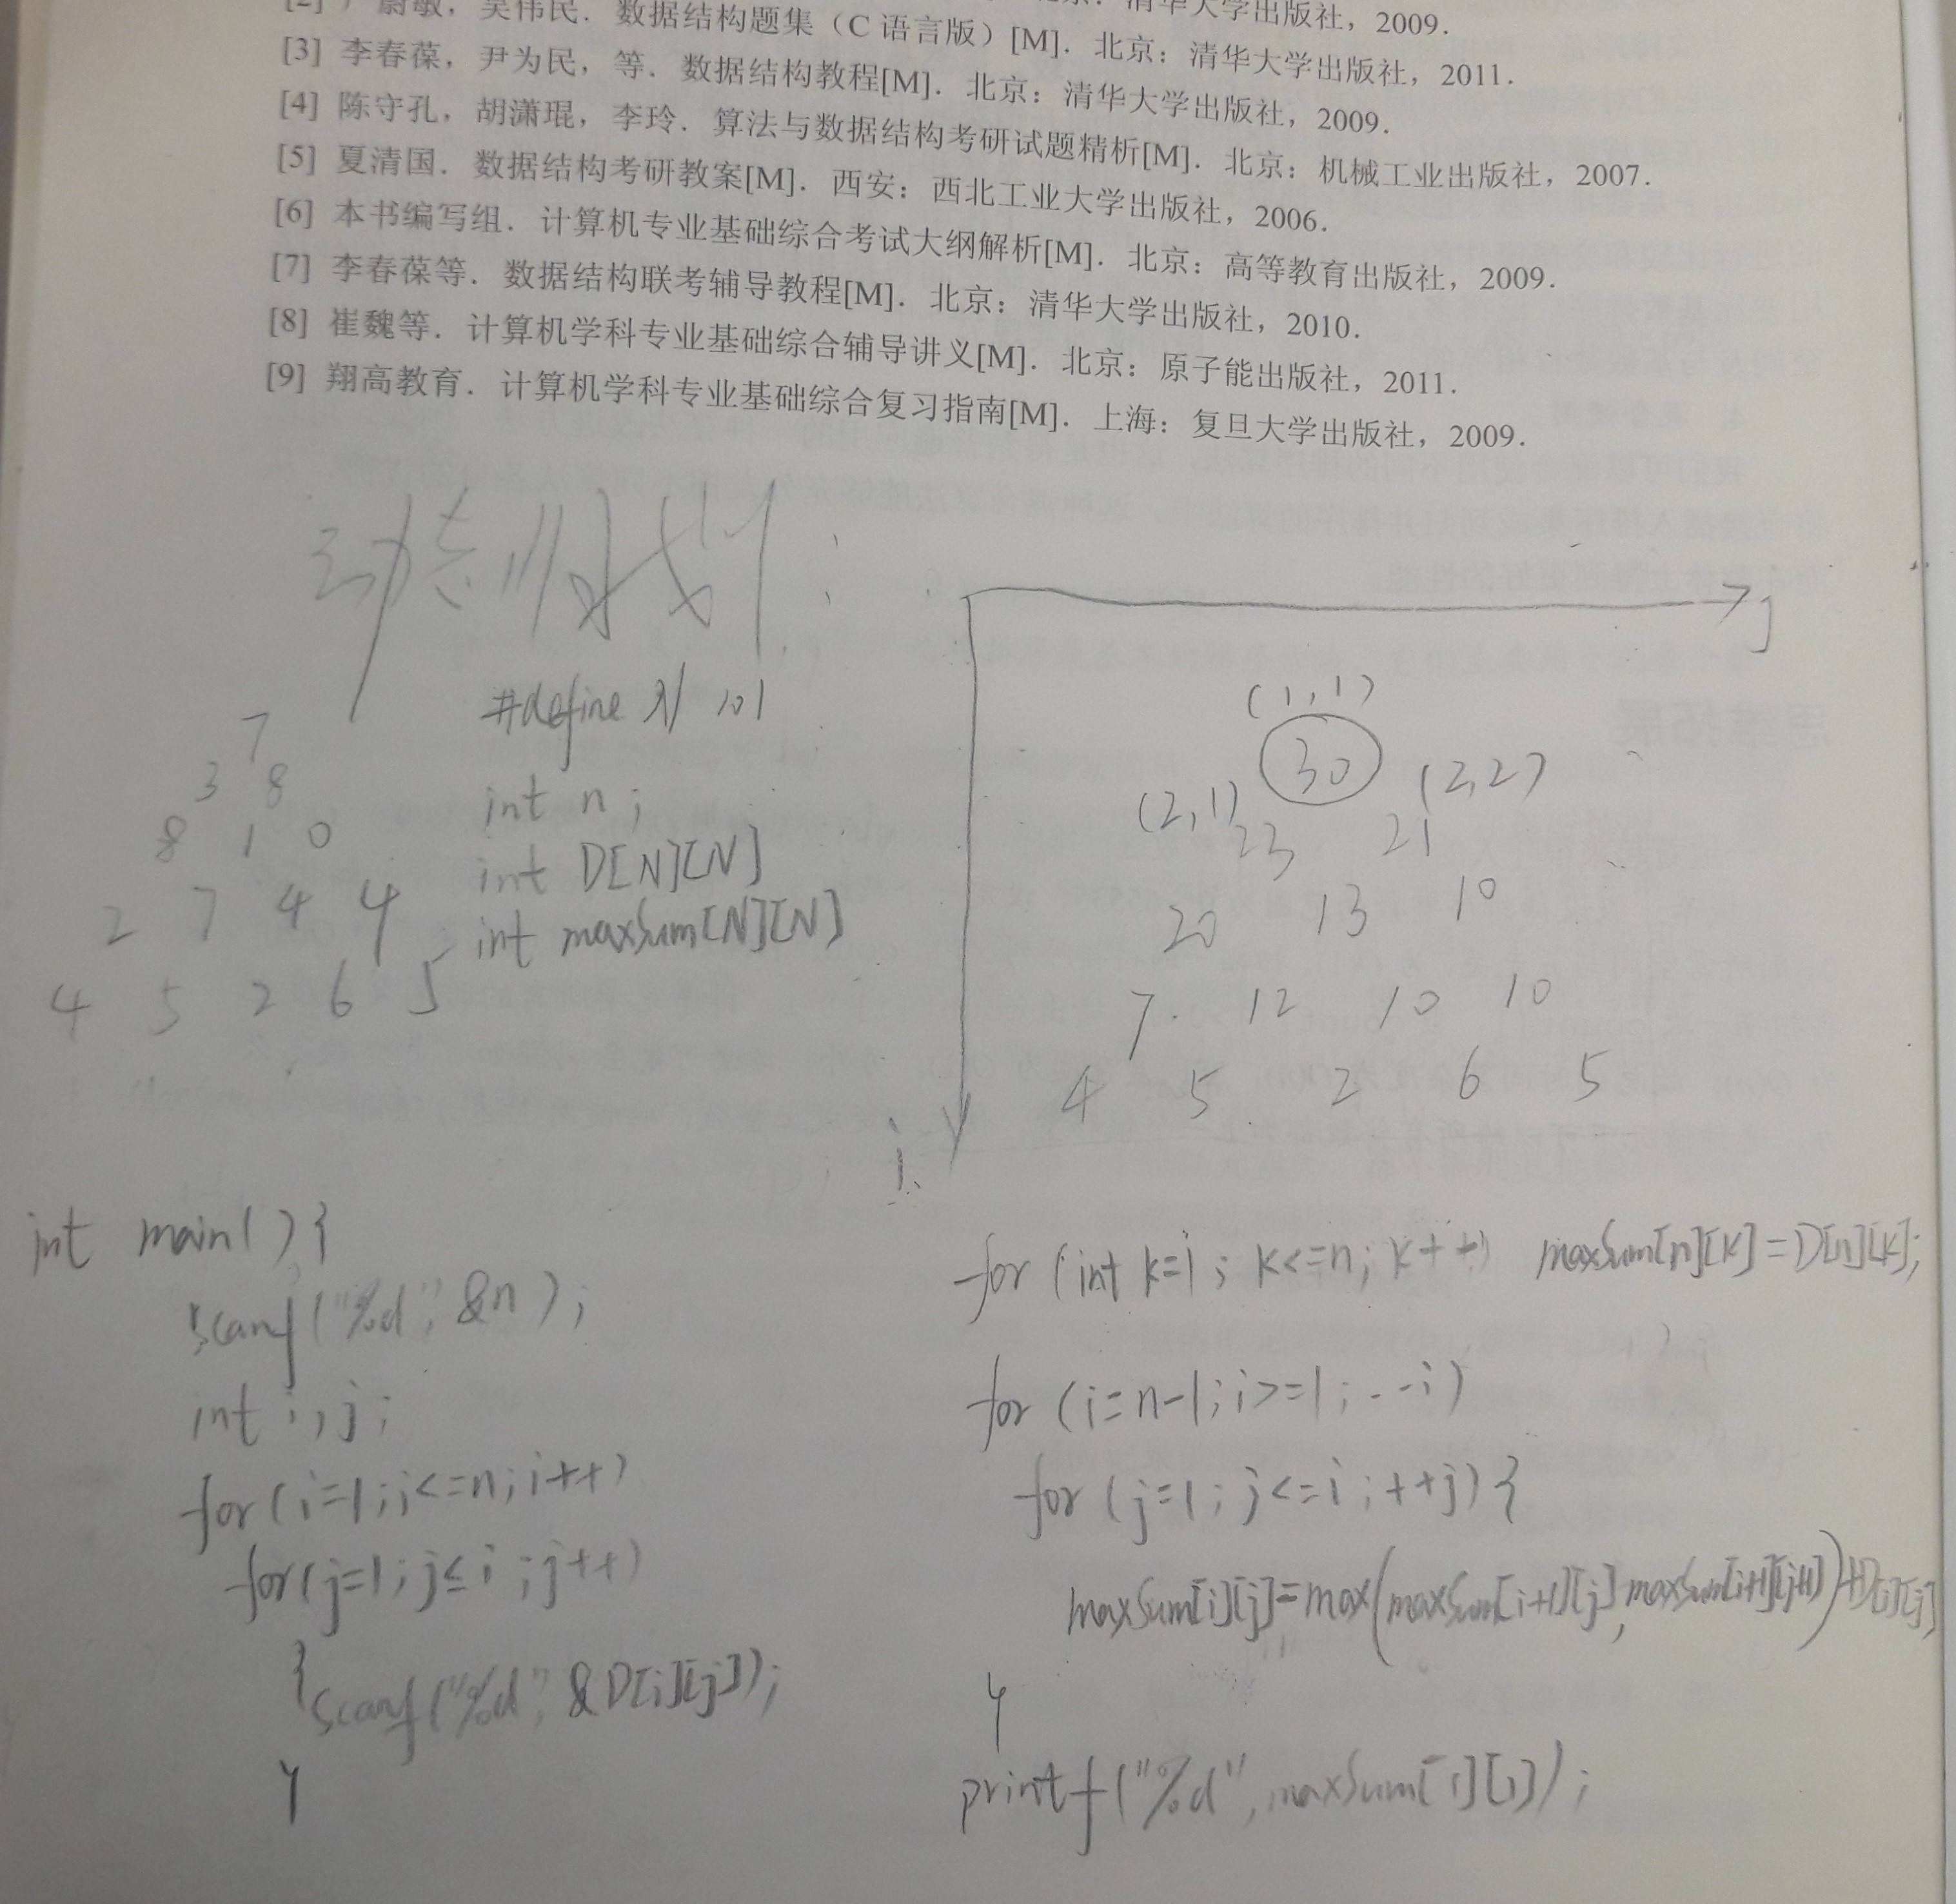 蔚敏，吴伟民．数据结构题集（C 语言版）[M]．北京：清华大学出版社，2009．
[3] 李春葆，尹为民，等．数据结构教程[M]．北京：清华大学出版社，2011．
[4] 陈守孔，胡潇琨，李玲．算法与数据结构考研试题精析[M]．北京：机械工业出版社，2007．
[5] 夏清国．数据结构考研教案[M]．西安：西北工业大学出版社，2006．
[6] 本书编写组．计算机专业基础综合考试大纲解析[M]．北京：高等教育出版社，2009．
[7] 李春葆等．数据结构联考辅导教程[M]．北京：清华大学出版社，2010．
[8] 崔魏等．计算机学科专业基础综合辅导讲义[M]．北京：原子能出版社，2011．
[9] 翔高教育．计算机学科专业基础综合复习指南[M]．上海：复旦大学出版社，2009．
动态规划：
7
3 8
8 1 0
2 7 4 4
4 5 2 6 5
#define N 101
int n;
int D[N][N]
int maxSum[N][N]
j
(1,1)
30
(2,1) (2,2)
23 21
20 13 10
7 12 10 10
4 5 2 6 5
i
int main(){
scanf("%d",&n);
int i,j;
for(i=1;i<=n;i++)
for(j=1;j≤i;j++)
{scanf("%d",&D[i][j]);
}
for(int k=1;k<=n;k++) maxSum[n][k]=D[n][k];
for(i=n-1;i>=1;--i)
for(j=1;j<=i;++j){
maxSum[i][j]=max(maxSum[i+1][j],maxSum[i+1][j+1])+D[i][j]
}
printf("%d",maxSum[1][1]);